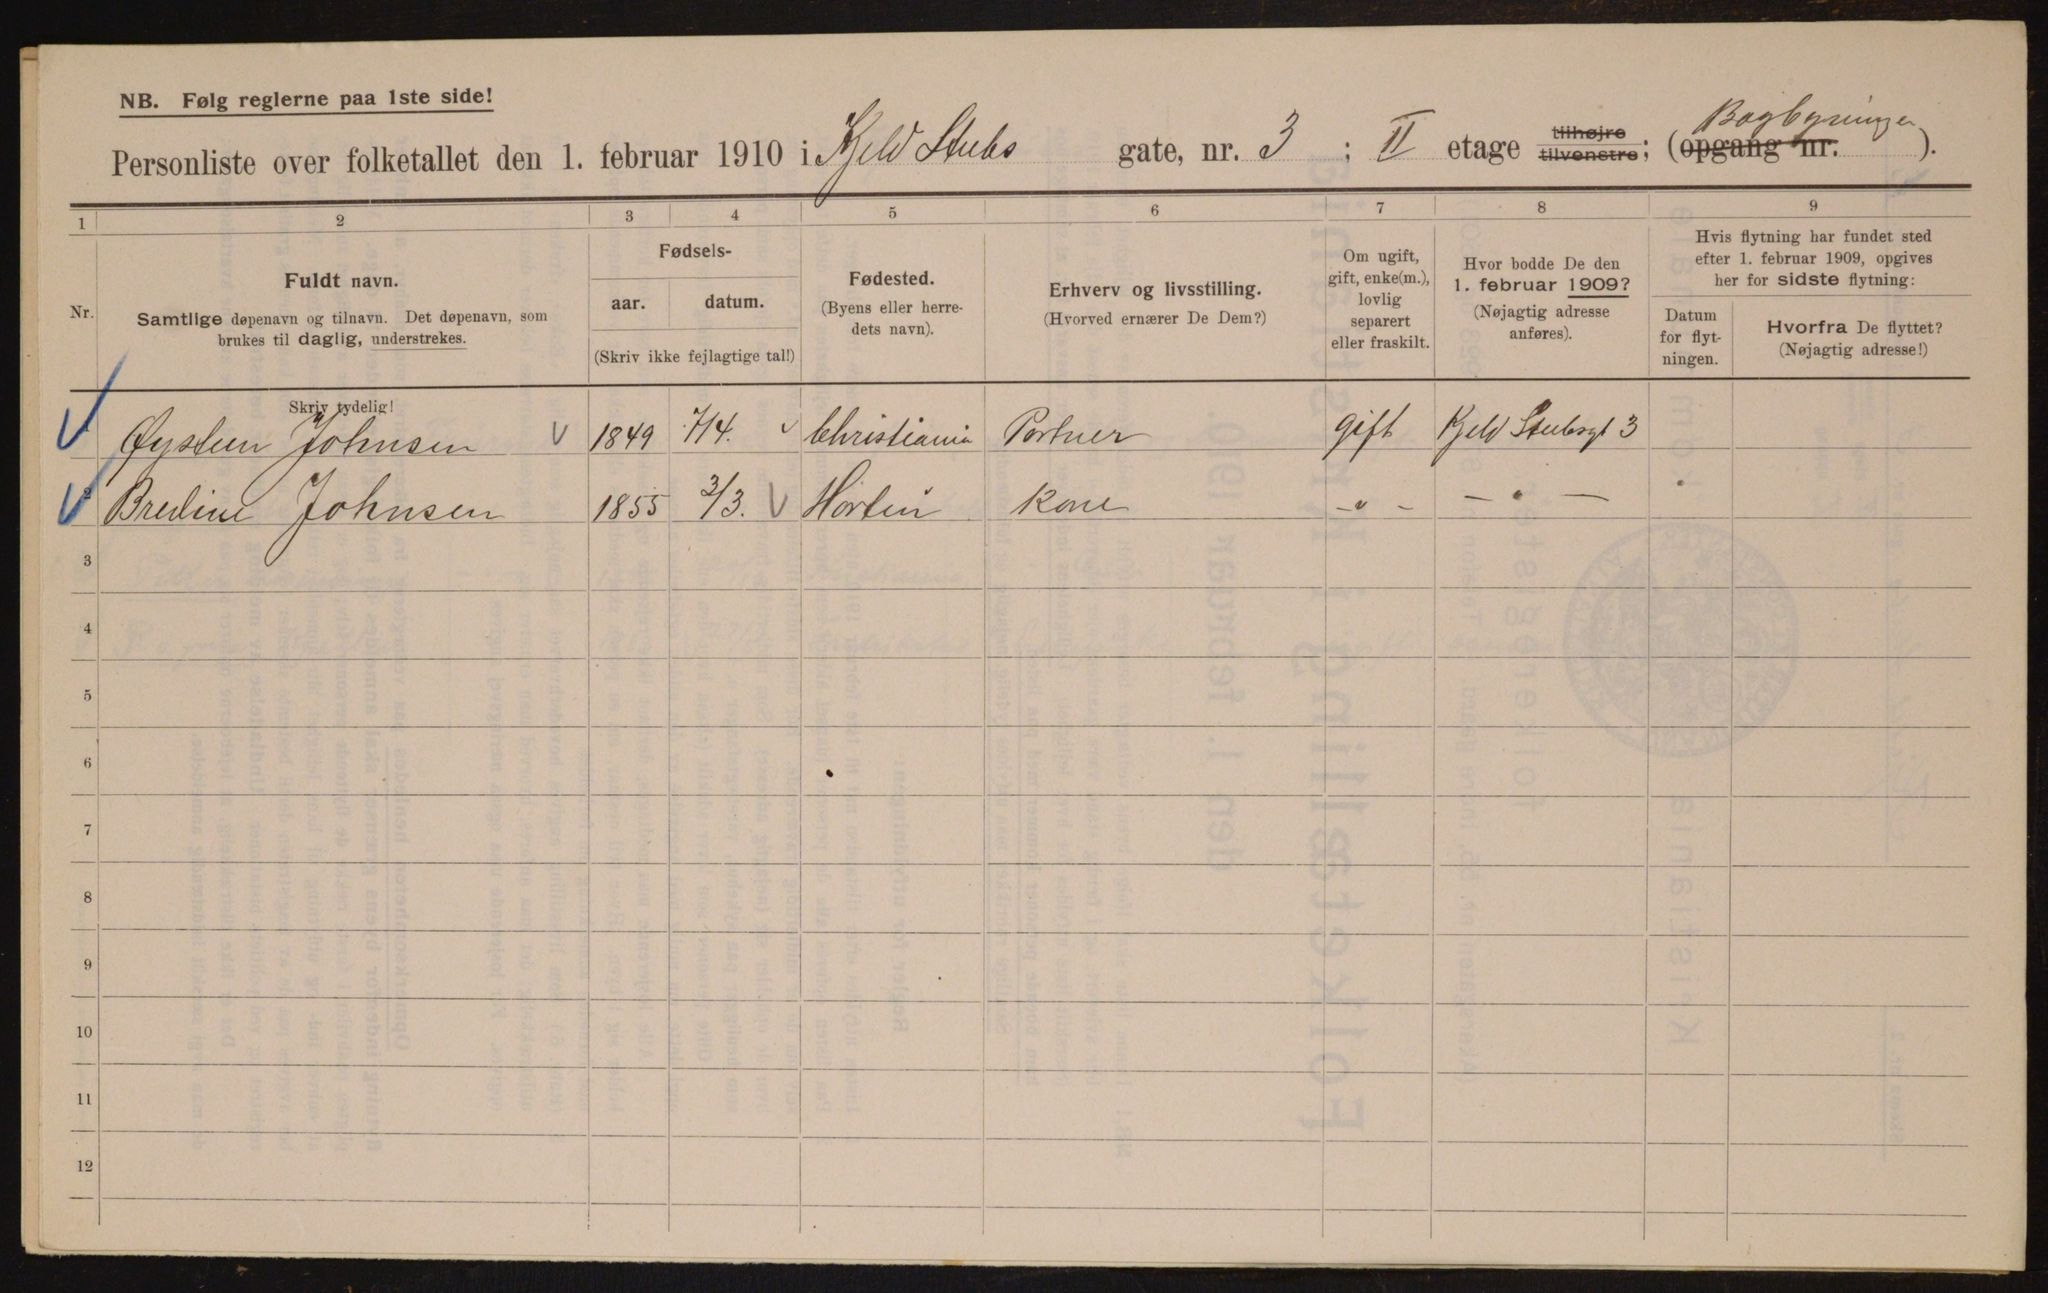 NB. Følg reglerne paa 1ste side!
Personliste over folketallet den 1. februar 1910 i Kjeld Stubs gate, nr. 3 ; II etage tilhøjre tilvenstre; (opgang nr. Bagbygningen ).
1 2 3 4 5 6 7 8 9
Nr.
Fuldt navn.
Samtlige døpenavn og tilnavn. Det døpenavn, som
brukes til daglig, understrekes.
Fødsels-
aar. datum.
(Skriv ikke fejlagtige tal!)
Fødested.
(Byens eller herre-
dets navn).
Erhverv og livsstilling.
(Hvorved ernærer De Dem?)
Om ugift,
gift, enke(m.),
lovlig
separert
eller fraskilt.
Hvor bodde De den
1. februar 1909?
(Nøjagtig adresse
anføres).
Hvis flytning har fundet sted
efter 1. februar 1909, opgives
her for sidste flytning:
Datum
for flyt-
ningen.
Hvorfra De flyttet?
(Nøjagtig adresse!)
Skriv tydelig!
Øystein Johnsen 1849 7/4. Christiania Portner gift Kjeld Stubsgt 3
2 Bredine Johnsen 1855 3/3. Horten Kone — " — — " —
3
4
5
6
7
8
9
10
11
12